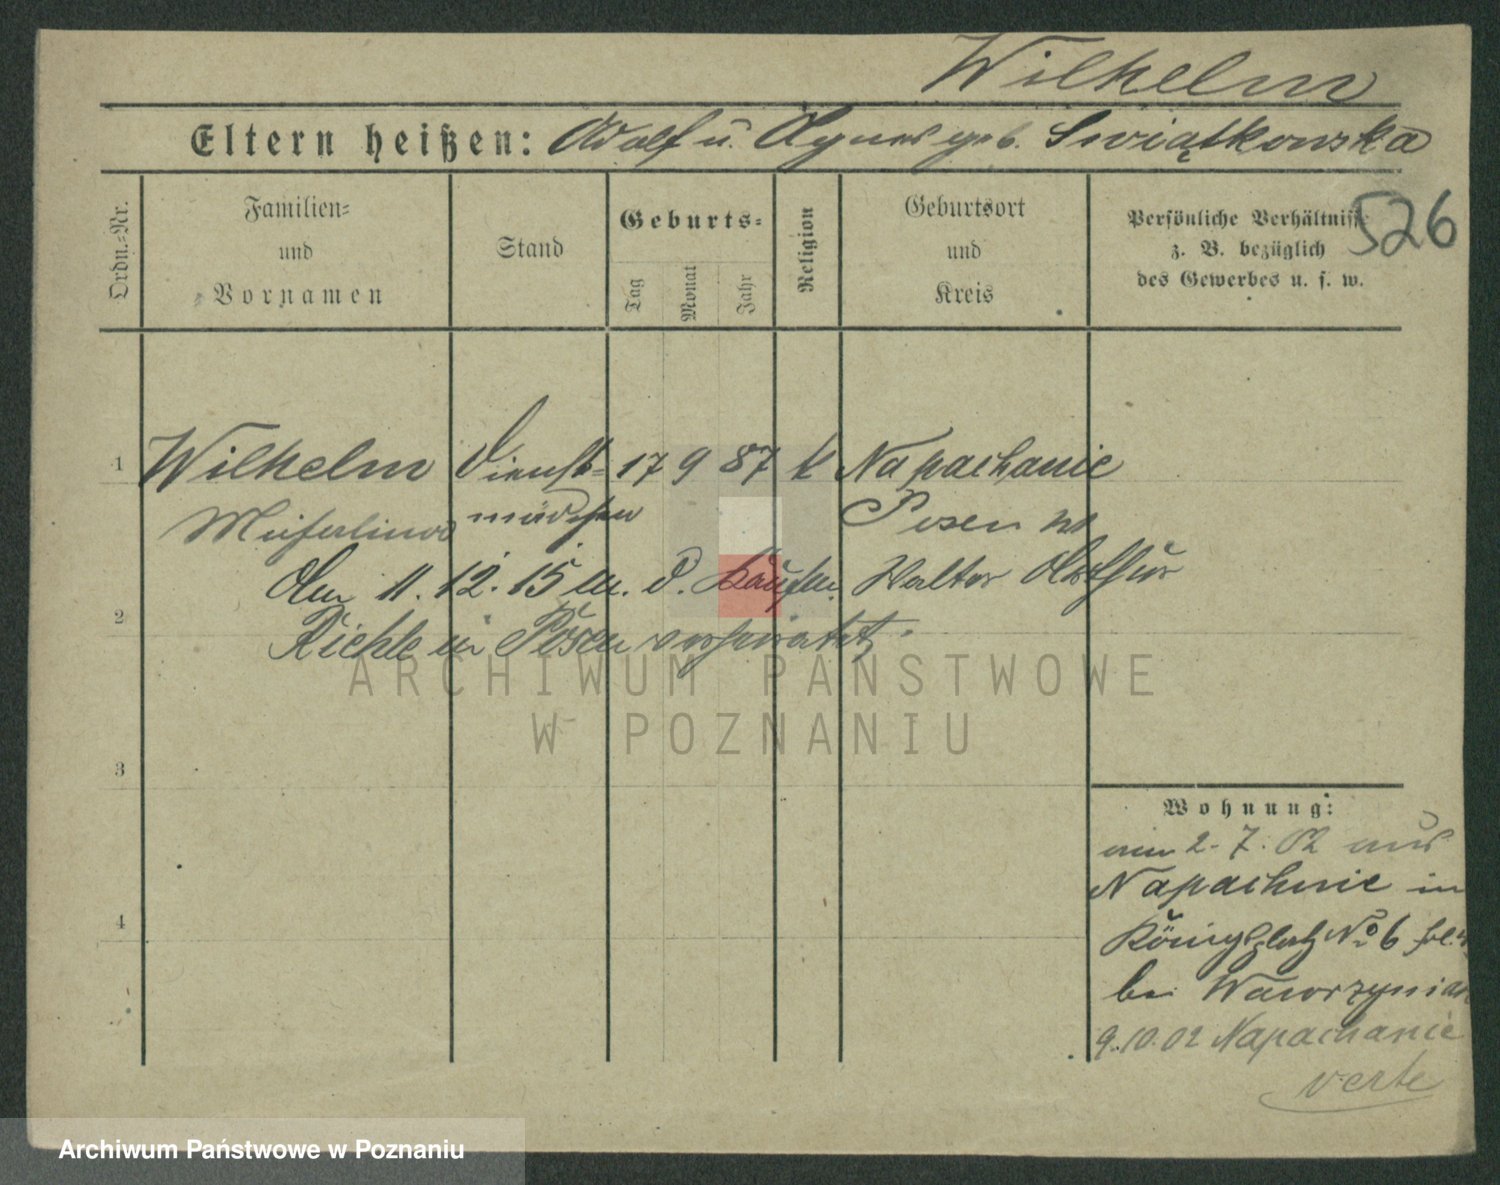 Wilhelm
Eltern heißen: Adolf u. Agnes geb. Swiątkowska
526
Ordn.=Nr.
Familien=
und
Vornamen
Stand
Geburts=
Tag
Monat
Jahr
Religion
Geburtsort
und
Kreis
Persönliche Verhältnisse
z. B. bezüglich
des Gewerbes u. s. w.
1 Wilhelm Dienst= 17 9 87 k Napachanie
mädchen Posen
Am 11. 12. 15 m. d. Kaufm. Walter Arthur
2
Riehle in Posen verheiratet.
ARCHIWUM PAŃSTWOWE
W POZNANIU
3
Wohnung:
am 2. 7. 02 aus
Napachnie in
4
Königsplatz No 6
bei
9.10.02 Napachanie
verte
Archiwum Państwowe w Poznaniu